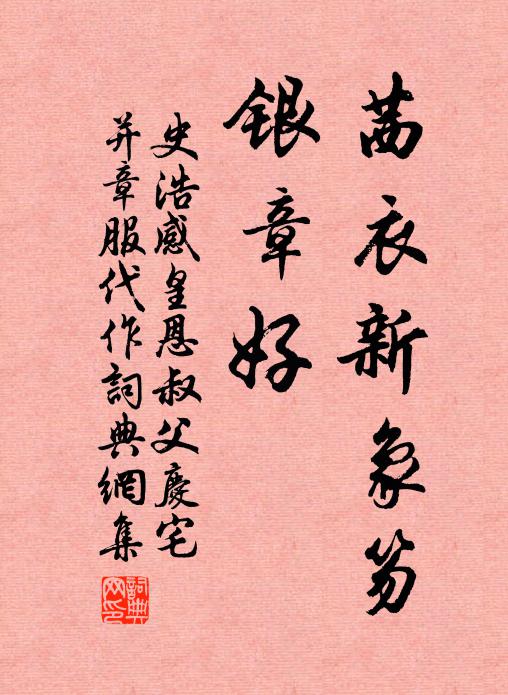 茜衣新象笏
銀章好
史浩感皇恩叔父慶宅
并章服代作詞典網集
詞典网印